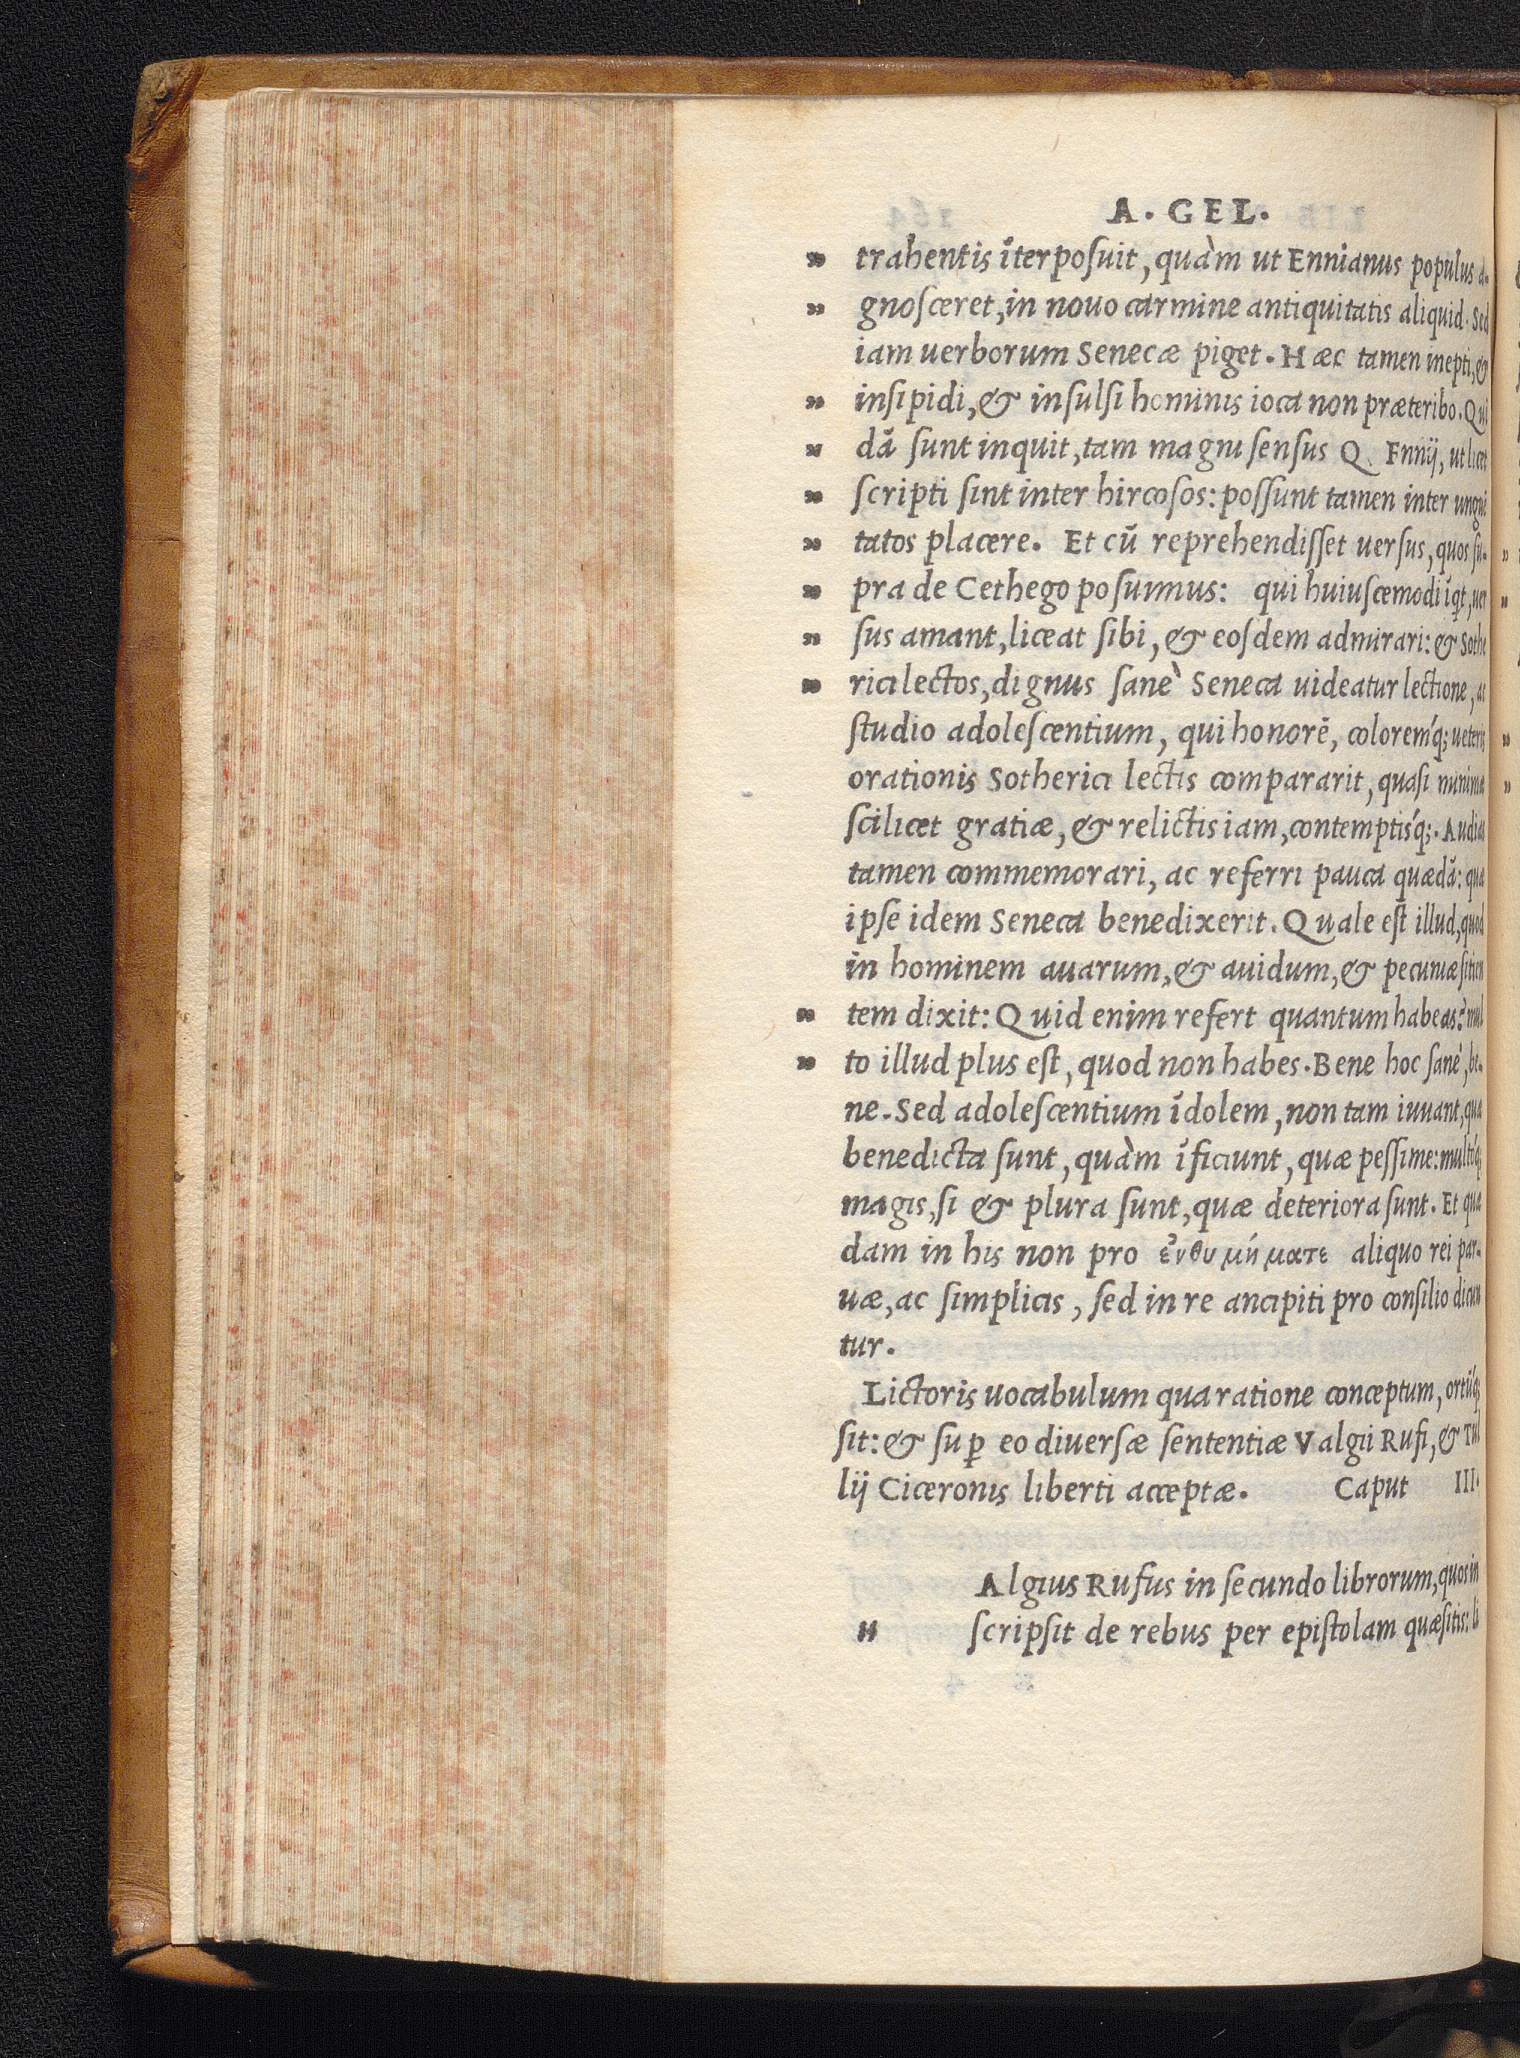 A. GEL.
" trahentis ĩterposuit, quàm ut Ennianus populus a-
" gnosceret, in nouo carmine antiquitatis aliquid. Sed
iam uerborum Senecæ piget. Hæc tamen inepti, &
" insipidi, & insulsi hominis ioca non præteribo. Qui
" dã sunt inquit, tam magni sensus Q. Ennij, ut licet
" scripti sint inter hircosos: possunt tamen inter ungue
" tatos placere. Et cũ reprehendisset uersus, quos su-
" pra de Cethego posuimus: qui huiuscemodi ĩqt, uer
" sus amant, liceat sibi, & eosdem admirari: & Sothe
" rici lectos, dignus sanè Seneca uideatur lectione, ac
studio adolescentium, qui honorẽ, coloremq́; ueteris
orationis Sotherici lectis compararit, quasi minimæ
scilicet gratiæ, & relictis iam, contemptisq́;. Audias
tamen commemorari, ac referri pauca quædã: quæ
ipse idem Seneca benedixerit. Quale est illud, quod
in hominem auarum, & auidum, & pecuniæ sitien
" tem dixit: Quid enim refert quantum habeas? mul
" to illud plus est, quod non habes. Bene hoc sanè, be-
ne. Sed adolescentium ĩdolem, non tam iuuant, quæ
benedicta sunt, quàm ĩficiunt, quæ pessime: multoq́;
magis, si & plura sunt, quæ deteriora sunt. Et quæ
dam in his non pro ἐνθυμήματε aliquo rei par-
uæ, ac simplicis, sed in re ancipiti pro consilio dicun
tur.
Lictoris uocabulum qua ratione conceptum, ortũq́;
sit: & suꝑ eo diuersæ sententiæ Valgii Rufi, & Tul
lij Ciceronis liberti acceptæ. Caput III.
Algius Rufus in secundo librorum, quos in
" scripsit de rebus per epistolam quæsitis: li